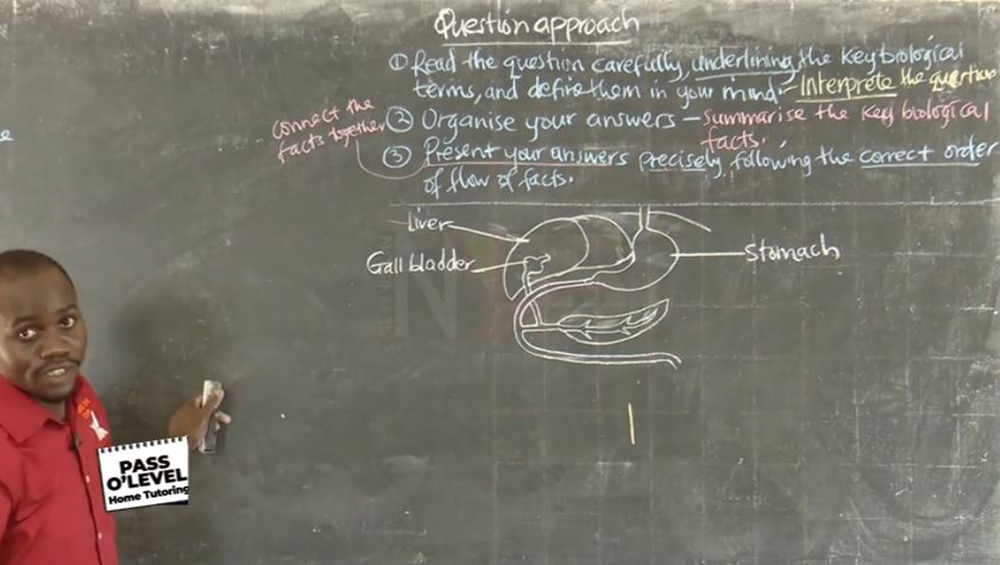 Question approach
① Read the question carefully, underlining the key biological
terms, and define them in your mind. - Interprete the question
connect the
facts together
② Organise your answers - summarise the key biological
facts.
③ Present your answers precisely following the correct order
of flow of facts.
Liver
Gall bladder
Stomach
PASS
O'LEVEL
Home Tutoring